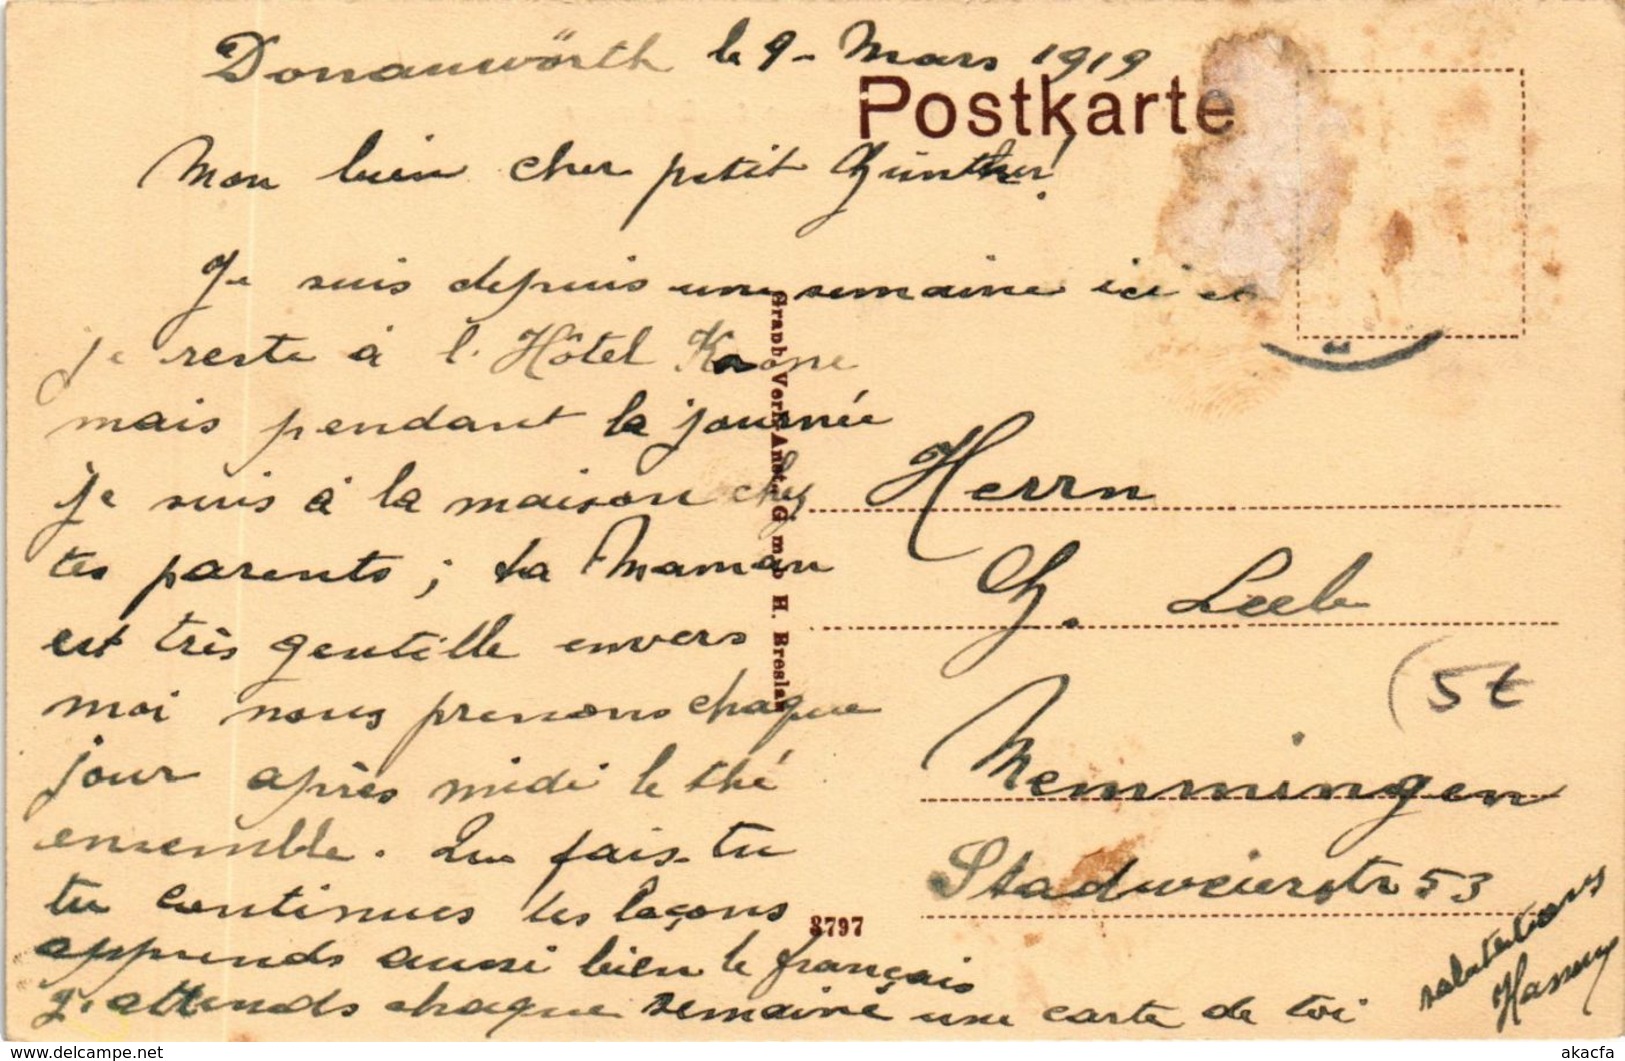 Donauwörth le 9 - Mars 1919
Postkarte
Mon bien cher petit Günther!
Je suis depuis une semaine ici et
je reste à l'Hôtel Krone
mais pendant la journée
je suis à la maison chez
tes parents; ta Maman
est très gentille envers
moi nous prenons chaque
jour après midi le thé
ensemble. Que fais-tu
tu continues tes laçons
apprends aussi bien le français
j'attends chaque semaine une carte de toi
salutations
Herrn
G. Leeb
Memmingen
Stadtweierstr 53
(5 €
8797
akacfa